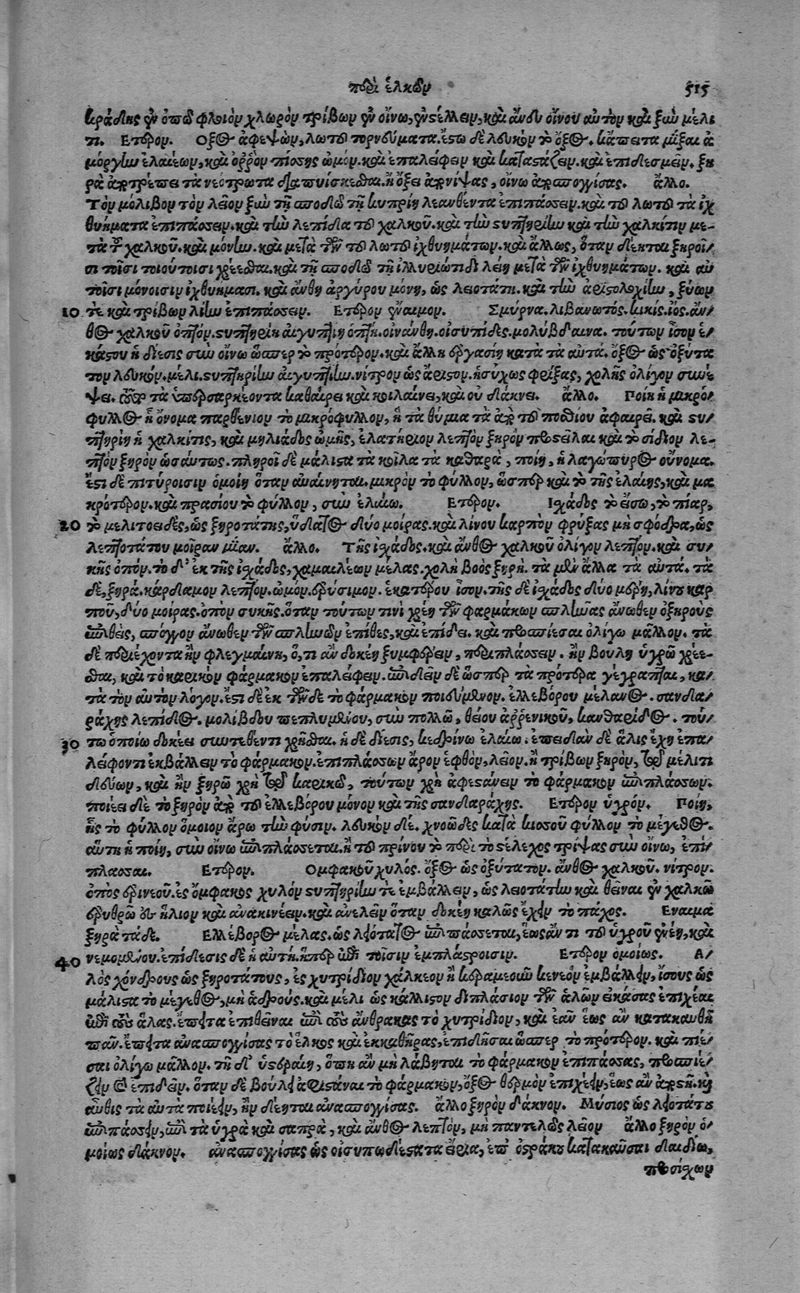 περὶ ἑλκῶν 515
κράδης ἐν ὀπῷ φλοιὸν χλωρὸν τρίβων ἐν οἴνῳ, ἐνστέλλειν, καὶ ἄνευ οἴνου αὐτὸν καὶ ξὺν μέλι
τι. Ἕτερον. Ὄξος ἀφεψῶν, λωτοῦ τορνεύματα. ἔστω δὲ λευκὸν τὸ ὄξος. κἄπειτα μῖξαι ἀ
μόργην ἐλαιέων, καὶ ὀρρὸν πίσσης ὠμόν. καὶ ἐπαλείφειν καὶ καταστάζειν. καὶ ἐπιδεσμεῖν. ξη
ρὰ ἀποτρέπει τὰ νεότρωτα διαπυΐσκεσθαι. ἢ ὄξει ἀπονίψας, οἴνῳ ἀποσπογγίσας. ἄλλο.
Τὸν μόλιβον τὸν λεῖον ξὺν τῇ σποδῷ τῇ κυπρίῃ λεανθέντα ἐπιπάσσειν. καὶ τοῦ λωτοῦ τὰ ἰχ
θυήματα ἐπιπάσσειν. καὶ τὴν λεπίδα τοῦ χαλκοῦ. καὶ τὴν στυπτηρίην καὶ τὴν χαλκῖτιν με
τὰ τοῦ χαλκοῦ. καὶ μούνην. καὶ μετὰ τῶν τοῦ λωτοῦ ἰχθυημάτων. καὶ ἄλλως, ὅταν δέηται ξηροῖ
σι τοῖσι τοιούτοισι χρέεσθαι. καὶ τῇ σποδῷ τῇ ἰλλυριώτιδι λείῃ μετὰ τῶν ἰχθυημάτων. καὶ αὐ
τοῖσι μόνοισιν ἰχθυήμασι. καὶ ἄνθη ἀργύρου μόνῃ, ὡς λειοτάτη. καὶ τὴν ἀριστολοχίην, ξύων
10 τε καὶ τρίβων λείην ἐπιπάσσειν. Ἕτερον ἔναιμον. Σμύρνα. λιβανωτός. κικίς. ἰός. ἄν
θος χαλκοῦ ὀπτόν. στυπτηρίη αἰγυπτίη ὀπτή. οἰνάνθη. οἰσυπίδες. μολύβδαινα. τούτων ἴσον ἑ
κάστου ἡ δίεσις σὺν οἴνῳ ὥσπερ τὸ πρότερον. καὶ ἄλλη ἐργασίη κατὰ τὰ αὐτά. ὄξος ὡς ὀξύτα
τον λευκόν. μέλι. στυπτηρίην αἰγυπτίην. νίτρον ὡς ἄριστον. ἡσύχως φρίξας, χολῆς ὀλίγον συνέ
ψει. οὗτος τὰ ὑπερσαρκέοντα καθαίρει καὶ κοιλαίνει, καὶ οὐ δάκνει. ἄλλο. Ποίη ἡ μικρό
φυλλος ᾗ ὄνομα παρθένιον τὸ μικρόφυλλον, ἢ τὰ θύμια τὰ ἀπὸ τοῦ ποσθίου ἀφαιρεῖ. καὶ στυ
πτηρίη ἢ χαλκῖτις, καὶ μηλιάδος ὠμῆς, ἐλατήριον λεπτὸν ξηρὸν προσεῖλαι καὶ τὸ σίδιον λε
πτὸν ξηρὸν ὡσαύτως. πληροῖ δὲ μάλιστα τὰ κοῖλα τὰ καθαρὰ, ποίη, ᾗ λαγώπυρος οὔνομα.
ἔστι δὲ πιτύροισιν ὁμοίη ὅταν αὐαίνηται. μικρὸν τὸ φύλλον, ὥσπερ καὶ τὸ τῆς ἐλαίης, καὶ μα
κρότερον. καὶ πρασίου τὸ φύλλον, σὺν ἐλαίῳ. Ἕτερον. Ἰσχάδος τὸ εἴσω, τὸ πῖαρ,
20 τὸ μελιτοειδὲς, ὡς ξηροτάτης, ὕδατος δύο μοίρας. καὶ λίνου καρπὸν φρύξας μὴ σφόδρα, ὡς
λεπτοτάτου μοῖραν μίαν. ἄλλο. Τῆς ἰσχάδος. καὶ ἄνθος χαλκοῦ ὀλίγον λεπτόν. καὶ συ
κῆς ὀπόν. τὸ δ' ἐκ τῆς ἰσχάδος, χαμαιλέων μέλας. χολὴ βοὸς ξηρή. τὰ μὲν ἄλλα τὰ αὐτά. τὰ
δὲ, ξηρά. κάρδαμον λεπτόν. ὠμόν. ἐρύσιμον. ἑκατέρου ἴσον. τῆς δὲ ἰσχάδος δύο μέρη, λίνου καρ
ποῦ, δύο μοίρας. ὀπὸν συκῆς. ὅταν τούτων τινὶ χρέῃ τῶν φαρμάκων σπλῆνας ἄνωθεν ὀξηροὺς
ἐπιθεὶς, σπόγγον ἄνωθεν τῶν σπληνῶν ἐπίθες, καὶ ἐπίδει. καὶ προσπιέσαι ὀλίγῳ μᾶλλον. τὰ
δὲ περιέχοντα ἢν φλεγμαίνῃ, ὅ,τι ἂν δοκέῃ ξυμφέρειν, περιπλάσσειν. ἢν βούλῃ ὑγρῷ χρέε
σθαι, καὶ τὸ καρικὸν φάρμακον ἐπαλείφειν. ἐπιδεῖν δὲ ὥσπερ τὰ πρότερα γέγραπται, κα
τὰ τὸν αὐτὸν λόγον. ἔστι δὲ ἐκ τῶνδε τὸ φάρμακον ποιεύμενον. ἑλλεβόρου μέλανος. σανδα
ράχης λεπίδος. μολίβδου πεπλυμένου, σὺν πολλῷ, θείου ἀρρενικοῦ, κανθαρίδος. τού
30 τῳ ὁποίῳ δοκέει συντεθέντι χρῆσθαι. ἡ δὲ δίεσις, κεδρίνῳ ἐλαίῳ. ἐπειδὰν δὲ ἅλις ἔχῃ ἐπα
λείφοντι ἐκβάλλειν τὸ φάρμακον. ἐπιπλάσσων ἄρον ἑφθὸν, λεῖον. ἢ τρίβων ξηρὸν, τῷ μέλιτι
δεύων, καὶ ἢν ξηρῷ χρῇ τῷ καρικῷ, τούτων χρὴ ἀφεστάνειν τὸ φάρμακον ἐπιπλάσσων.
ποιέει δὲ τὸ ξηρὸν ἀπὸ τοῦ ἑλλεβόρου μόνον καὶ τῆς σανδαράχης. Ἕτερον ὑγρόν. Ποίη,
ἧς τὸ φύλλον ὅμοιον ἄρῳ τὴν φύσιν. λευκὸν δέ. χνοῶδες κατὰ κισσοῦ φύλλον τὸ μέγεθος.
αὕτη ἡ ποίη, σὺν οἴνῳ ἐπιπλάσσεται. ἢ τοῦ πρίνου τὸ περὶ τὸ στέλεχος τρίψας σὺν οἴνῳ, ἐπι
πλάσσαι. Ἕτερον. Ὄμφακος χυλός. ὄξος ὡς ὀξύτατον. ἄνθος χαλκοῦ. νίτρον.
ὀπὸς ἐρινεοῦ. ἐς ὄμφακος χυλὸν στυπτηρίην τε ἐμβάλλειν, ὡς λειοτάτην καὶ θεῖναι ἐν χαλκῷ
ἐρυθρῷ ἐς ἥλιον καὶ ἀνακινέειν. καὶ ἀνελεῖν ὅταν δοκέῃ καλῶς ἔχειν τὸ πάχος. Ἔναιμα
ξηρὰ τάδε. Ἑλλέβορος μέλας. ὡς λειότατος ἐπιπάσσεται, ἕως ἄν τι τοῦ ὑγροῦ ἐνέῃ, καὶ
40 νεμομένου. ἐπίδεσις δὲ ἡ αὐτὴ. ἥπερ ἐπὶ τοῖσιν ἐμπλάστροισιν. Ἕτερον ὁμοίως. Ἁ
λὸς χόνδρους ὡς ξηροτάτους, ἐς χυτρίδιον χάλκεον ἢ κεράμεον κενεὸν ἐμβάλλειν, ἴσους ὡς
μάλιστα τὸ μέγεθος, μὴ ἁδρούς. καὶ μέλι ὡς κάλλιστον διπλάσιον τῶν ἁλῶν εἰκάσας ἐπιχέαι
ἐπὶ τοὺς ἅλας. ἔπειτα ἐπιθεῖναι ἐπὶ τοὺς ἄνθρακας τὸ χυτρίδιον, καὶ ἐᾶν ἕως ἂν κατακαυθῇ
πᾶν. ἔπειτα ἀνασπογγίσας τὸ ἕλκος καὶ ἐκκαθῆρας, ἐπιδῆσαι ὥσπερ τὸ πρότερον. καὶ πιέ
σαι ὀλίγῳ μᾶλλον. τῇ δ' ὑστεραίῃ, ὅπη ἂν μὴ λάβηται τὸ φάρμακον ἐπιπάσσας, προσπιέ
ζειν καὶ ἐπιδεῖν. ὅταν δὲ βούλῃ ἀφιστάναι τὸ φάρμακον, ὄξος θερμὸν ἐπιχεῖν, ἕως ἂν ἀποστῇ. καὶ
αὖθις τὰ αὐτὰ ποιέειν, ἢν δέηται ἀνασπογγίσας. ἄλλο ξηρὸν δάκνον. Μίσυος ὡς λειοτάτου
ἐπιπάσσειν, ἐπὶ τὰ ὑγρὰ καὶ σαπρὰ, καὶ ἄνθος λεπτὸν, μὴ παντελῶς λεῖον ἄλλο ξηρὸν ὁ
μοίως δάκνον. ἀνασπογγίσας ὡς οἰσυπωδέστατα εἴρια, ἐπ' ὀστράκου κατακαῦσαι δαιδίῳ,
προσίχων